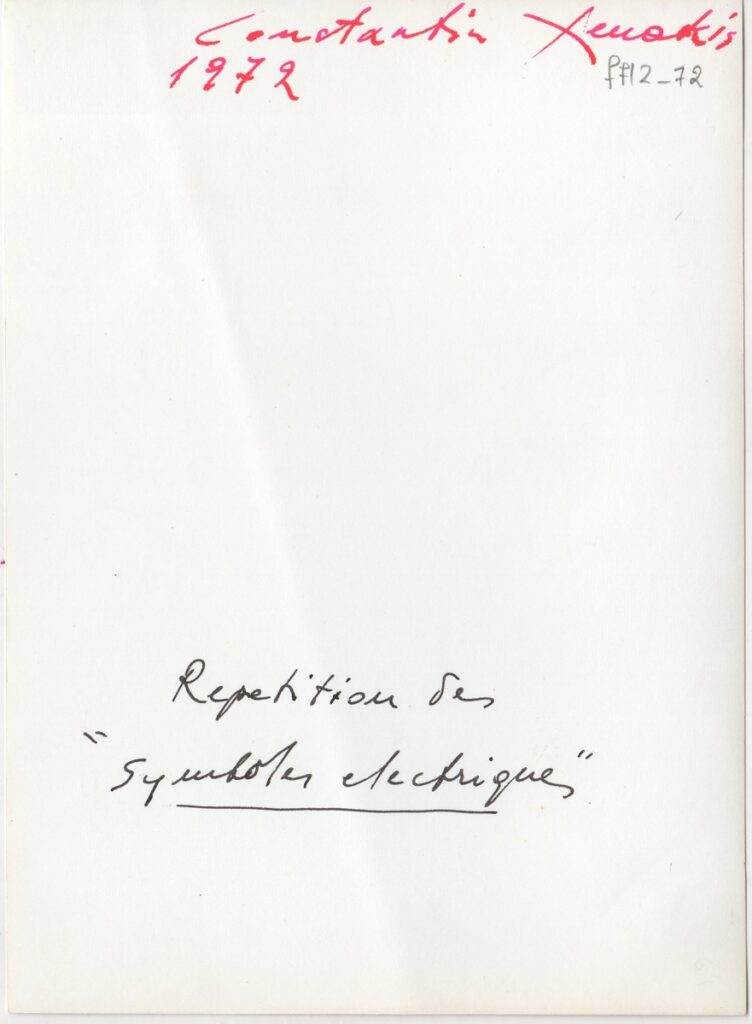 Constantin Xenakis
1972
ff12-72
Repetition des
"Symboles electriques"